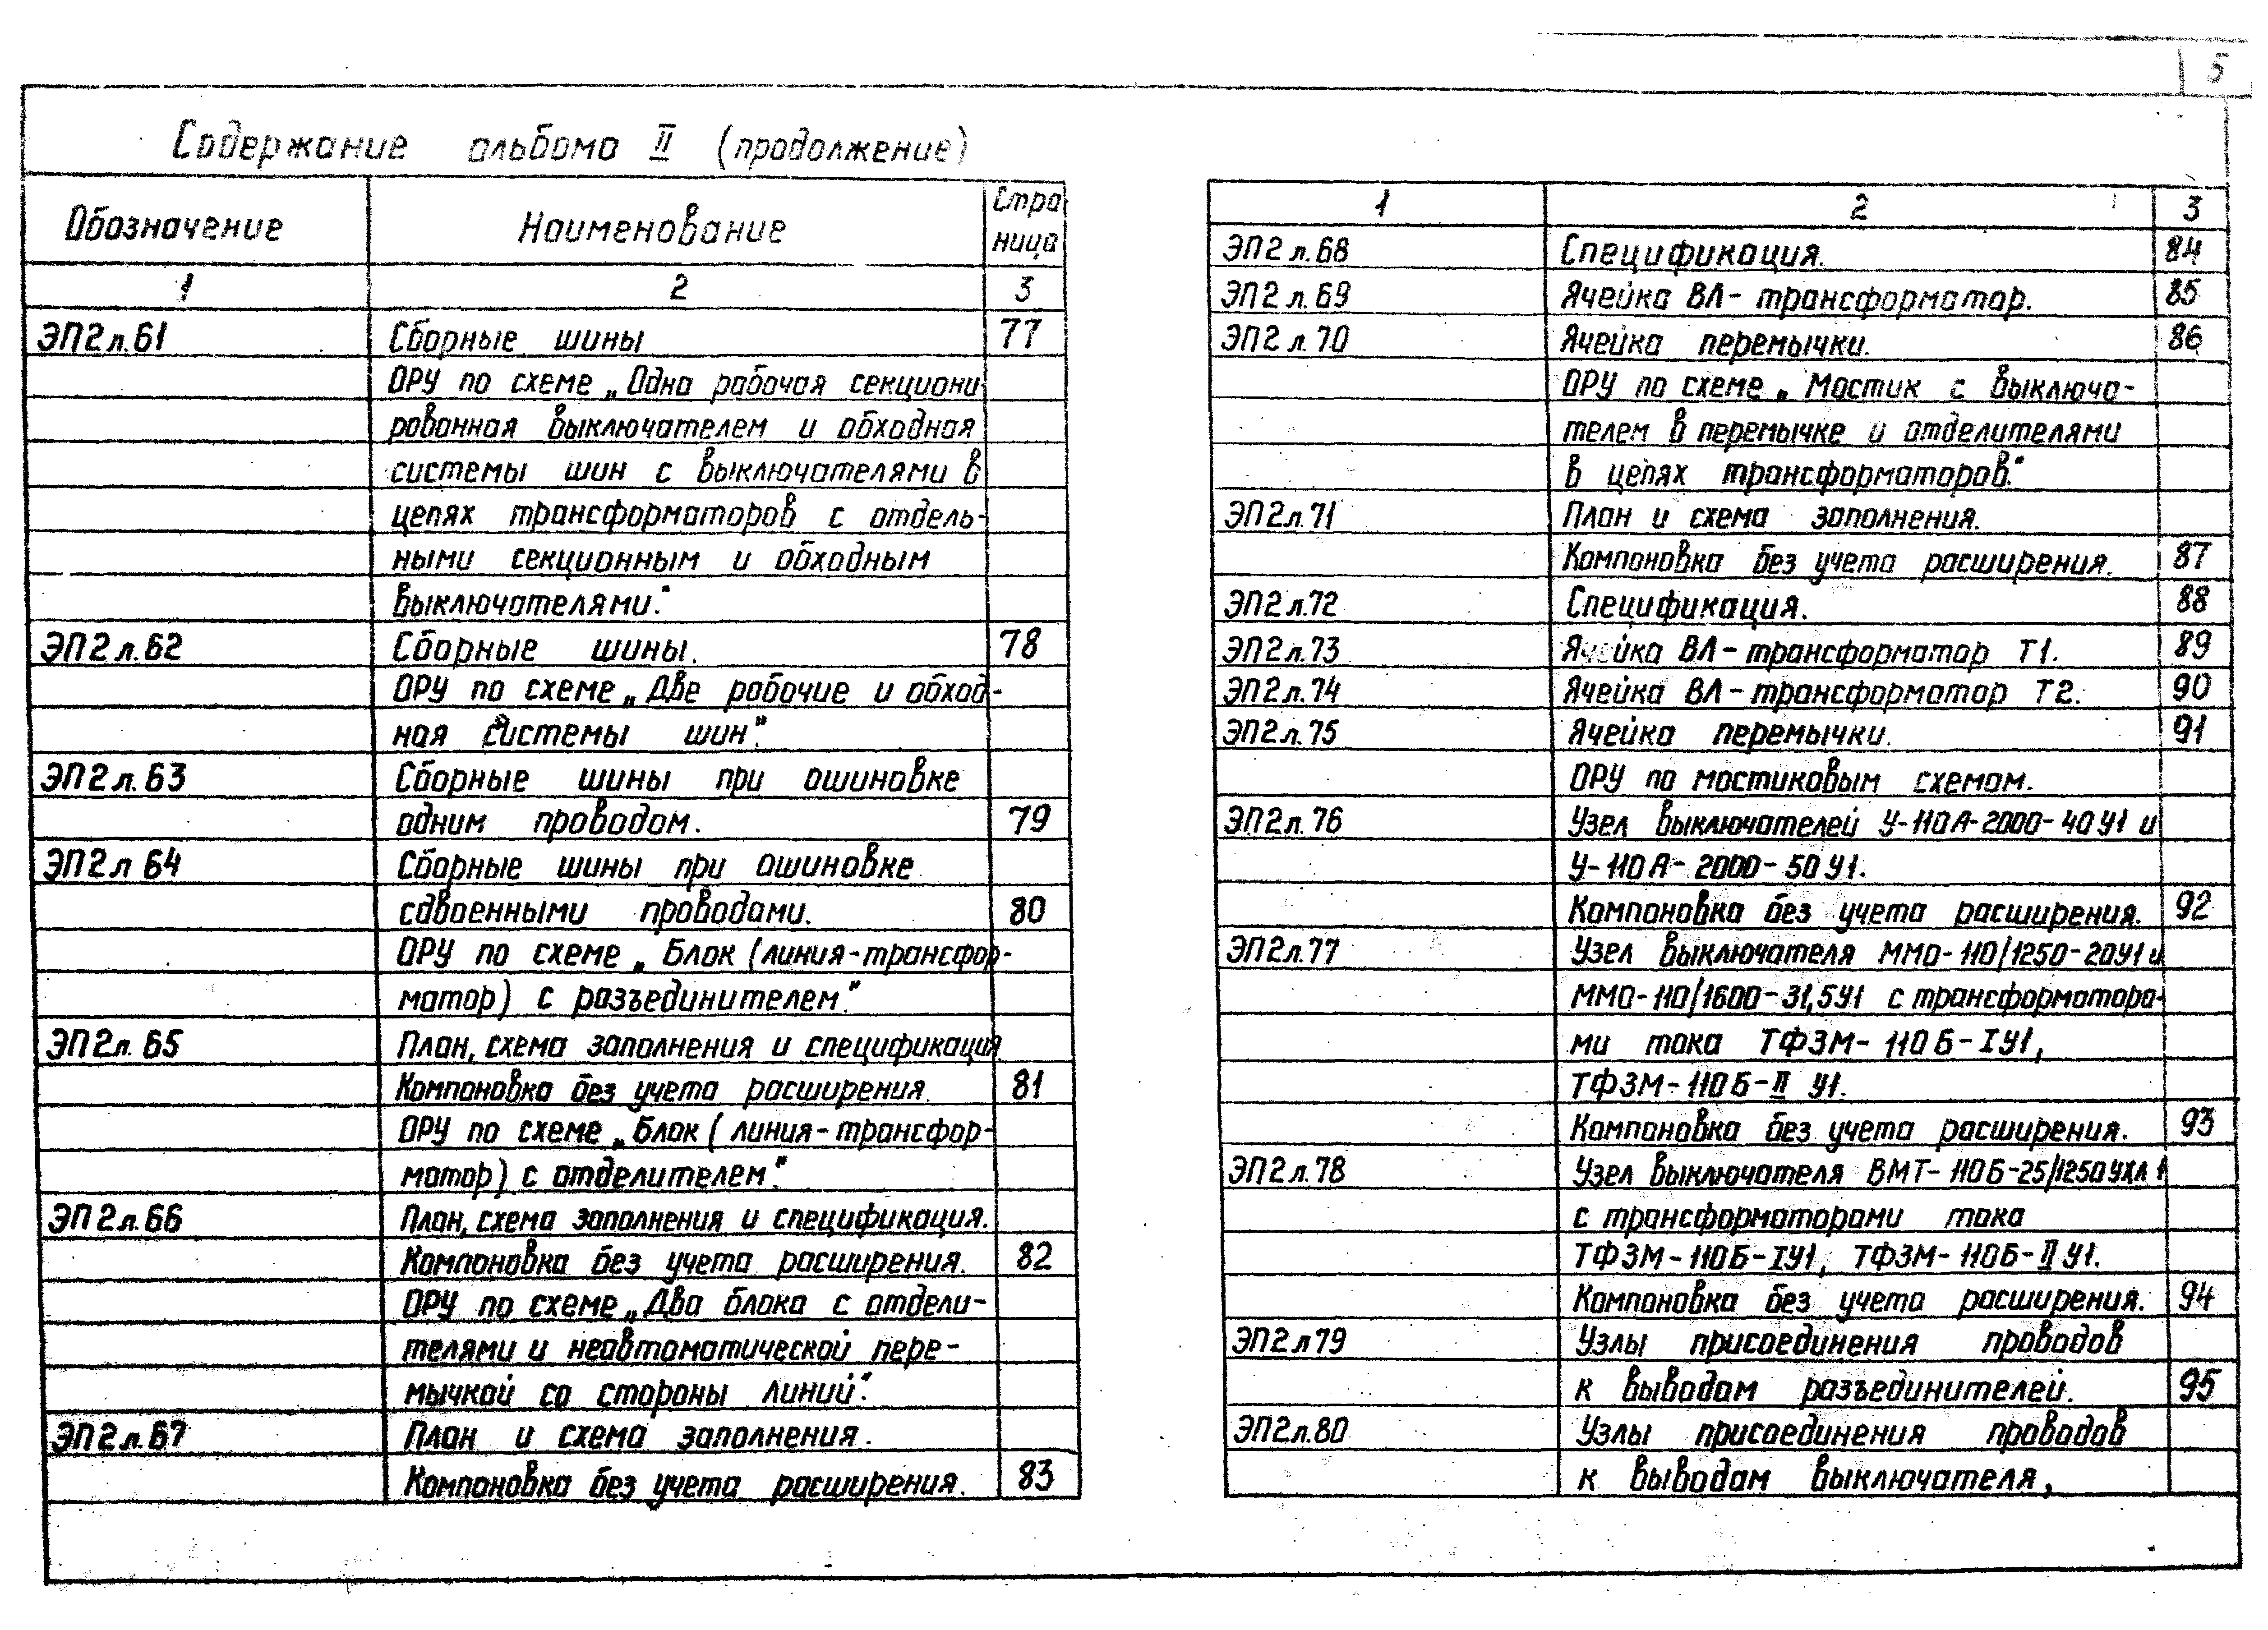 5
Содержание альбома II (продолжение)
Обозначение Наименование Стра
ница
1 2 3
ЭП2л.61 Сборные шины 77
ОРУ по схеме „Одна рабочая секциони-
рованная выключателем и обходная
системы шин с выключателями в
цепях трансформаторов с отдель-
ными секционным и обходным
выключателями."
ЭП2л.62 Сборные шины. 78
ОРУ по схеме „Две рабочие и обход-
ная системы шин".
ЭП2л.63 Сборные шины при ошиновке
одним проводом. 79
ЭП2л 64 Сборные шины при ошиновке
сдвоенными проводами. 80
ОРУ по схеме „Блок (линия-трансфор-
матор) с разъединителем".
ЭП2л. 65 План, схема заполнения и спецификация
Компоновка без учета расширения. 81
ОРУ по схеме „Блок (линия-трансфор-
матор) с отделителем".
ЭП2л.66 План, схема заполнения и спецификация.
Компоновка без учета расширения. 82
ОРУ по схеме „Два блока с отдели-
телями и неавтоматической пере-
мычкой со стороны линий".
ЭП2л.67 План и схема заполнения.
Компоновка без учета расширения. 83
1 2 3
ЭП2 л.68 Спецификация. 84
ЭП2 л.69 Ячейка ВЛ-трансформатор. 85
ЭП2 л.70 Ячейка перемычки. 86
ОРУ по схеме „Мостик с выключа-
телем в перемычке и отделителями
в цепях трансформаторов."
ЭП2л.71 План и схема заполнения.
Компоновка без учета расширения. 87
ЭП2л.72 Спецификация. 88
ЭП2л.73 Ячейка ВЛ-трансформатор Т1. 89
ЭП2л.74 Ячейка ВЛ-трансформатор Т2. 90
ЭП2л.75 Ячейка перемычки. 91
ОРУ по мостиковым схемам.
ЭП2л.76 Узел выключателей У-110А-2000-40У1 и
У-110А-2000-50У1.
Компоновка без учета расширения. 92
ЭП2л.77 Узел выключателя ММО-110/1250-20У1 и
ММО-110/1600-31,5У1 с трансформатора-
ми тока ТФЗМ-110Б-IУ1,
ТФЗМ-110Б-II У1.
Компоновка без учета расширения. 93
ЭП2л.78 Узел выключателя ВМТ-110Б-25/1250УХЛ1
с трансформаторами тока
ТФЗМ-110Б-IУ1, ТФЗМ-110Б-IIУ1.
Компоновка без учета расширения. 94
ЭП2л79 Узлы присоединения проводов
к выводам разъединителей. 95
ЭП2л.80 Узлы присоединения проводов
к выводам выключателя,